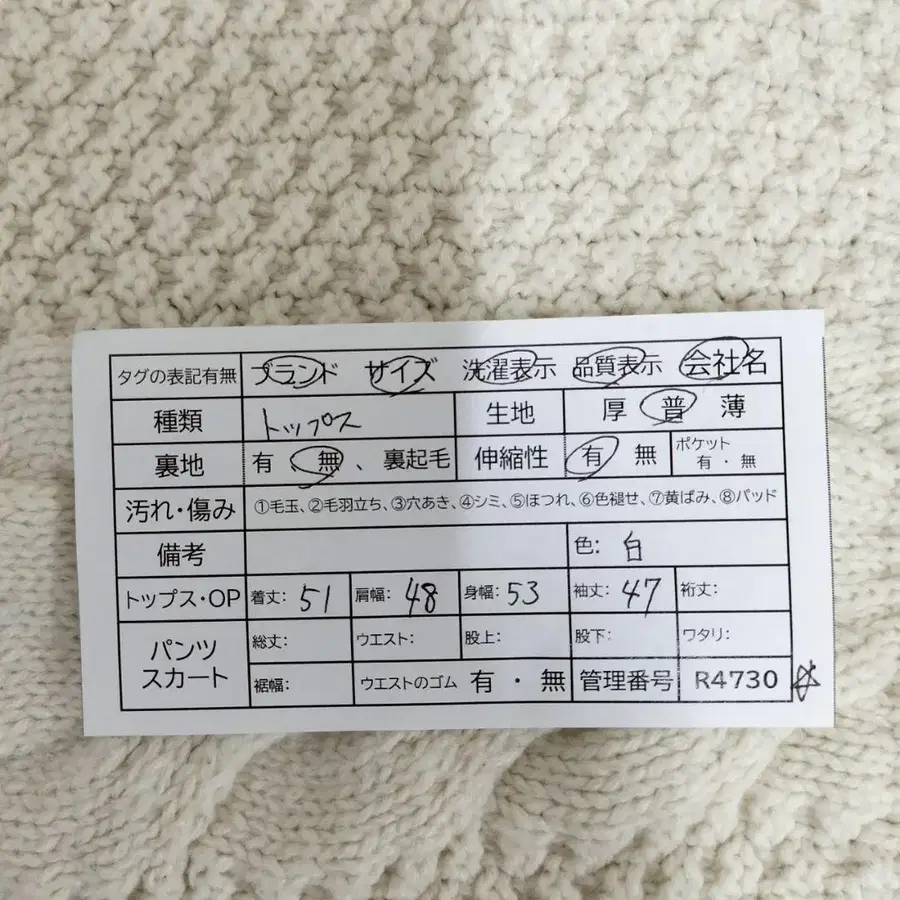 タグの表記有無 ブランド サイズ 洗濯表示 品質表示 会社名
種類 トップス 生地 厚 普 薄
裏地 有、無、裏起毛 伸縮性 有 無 ポケット 有・無
汚れ・傷み ①毛玉、②毛羽立ち、③穴あき、④シミ、⑤ほつれ、⑥色褪せ、⑦黄ばみ、⑧パッド
備考 色: 白
トップス・OP 着丈: 51 肩幅: 48 身幅: 53 袖丈: 47 裄丈:
パンツ スカート 総丈: ウエスト: 股上: 股下: ワタリ:
裾幅: ウエストのゴム 有・無 管理番号 R4730